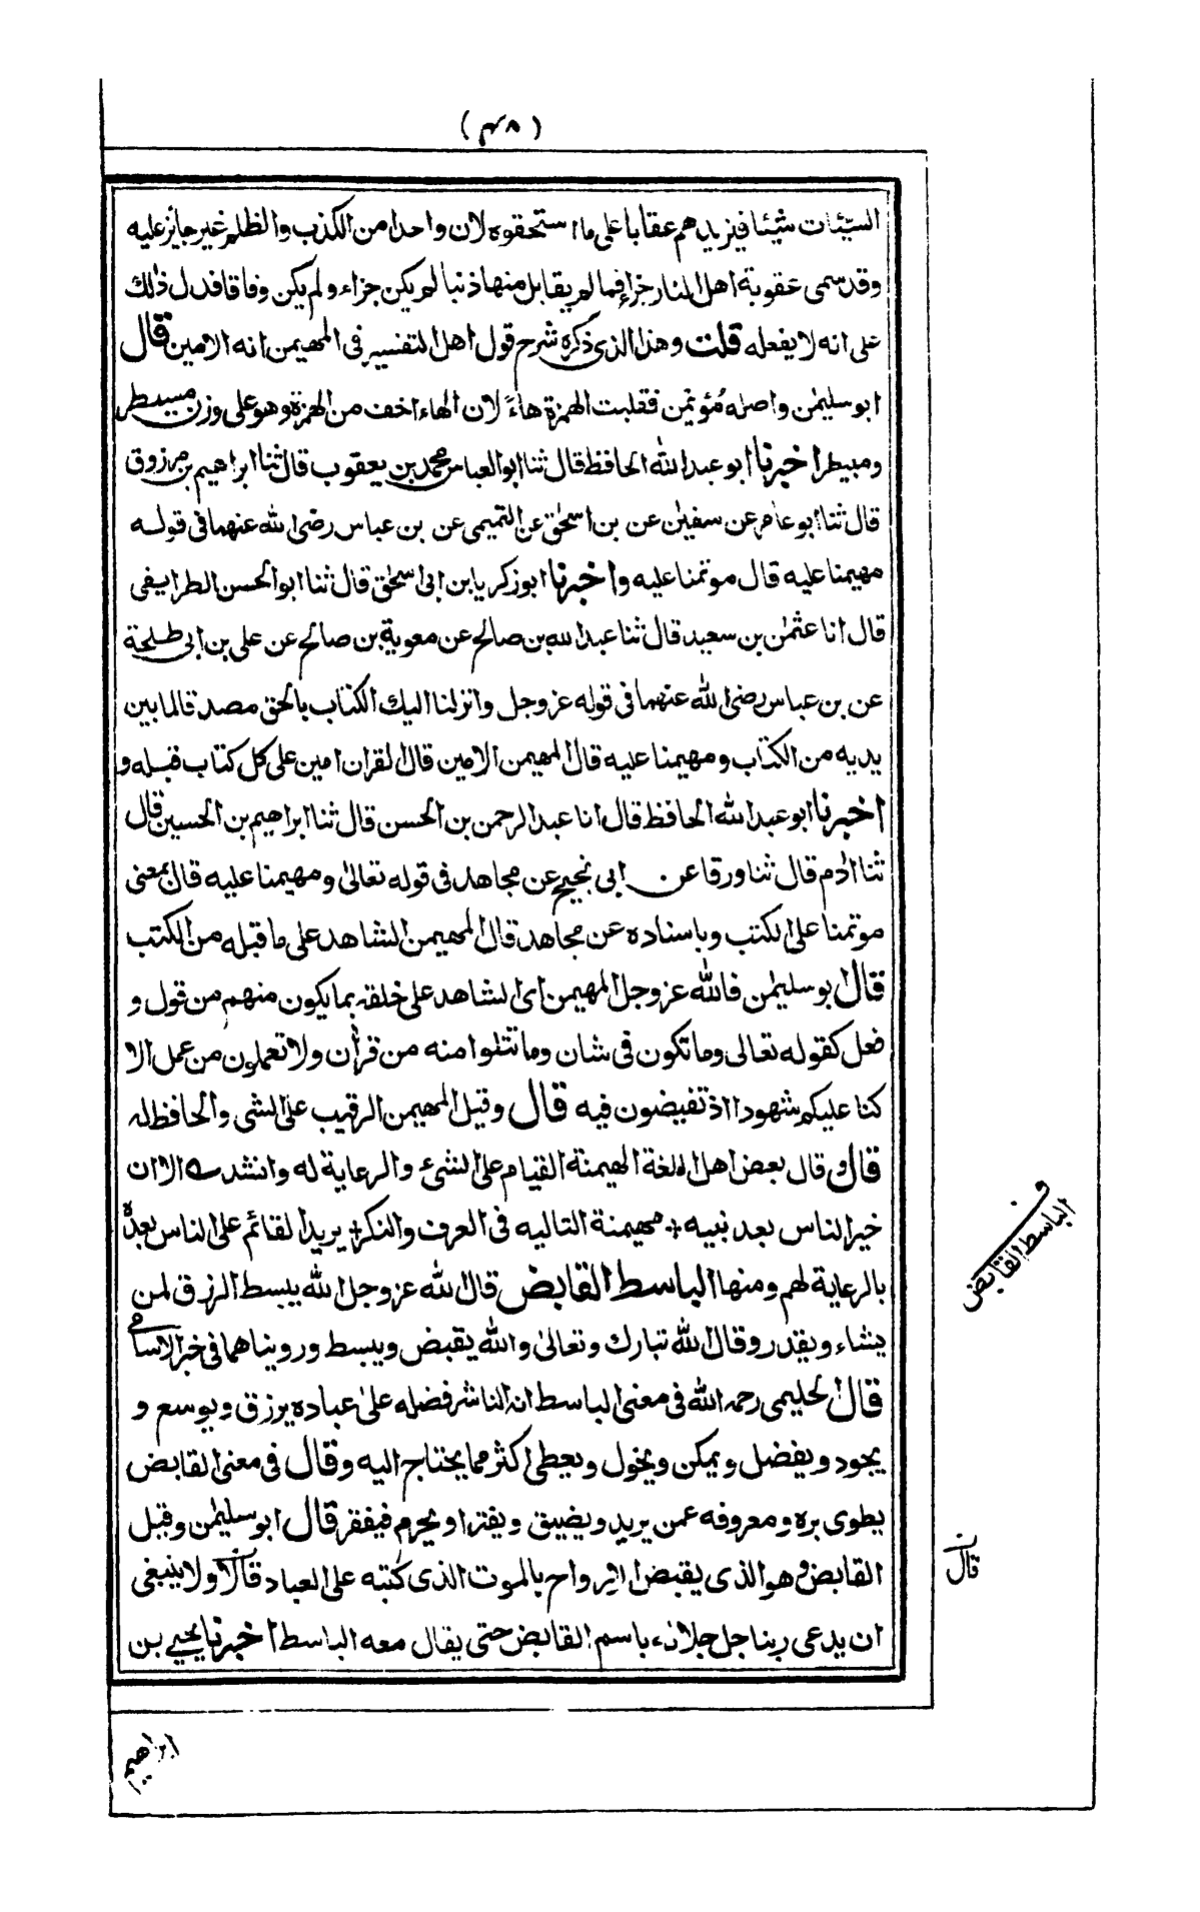 (٤٨)
السيّئات شيئا فيزيدهم عقابا على ما استحقوه لان واحدا من الكذب والظلم غير جائز عليه
وقد سمى عقوبة اهل النار جزاء فما لم يقابل منها ذنبا لم يكن جزاء ولم يكن وفاقا فدل ذلك
على انه لا يفعله قلت وهذا الذى ذكره شرح قول اهل التفسير فى المهيمن انه الامين قال
ابو سليمٰن واصله مُؤيْمن فقلبت الهمزة هاءً لان الهاء اخف من الهمزة وهو على وزن مسيطر
ومبيطر اخبرنا ابو عبد الله الحافظ قال ثنا ابو العباس محمد بن يعقوب قال ثنا ابراهيم بن مرزوق
قال ثنا ابو عامر عن سفيٰن عن بن اسحٰق عن التميمى عن بن عباس رضى الله عنهما فى قوله
مهيمنا عليه قال موتمنا عليه واخبرنا ابو زكريا بن ابى اسحٰق قال ثنا ابو الحسن الطرايفى
قال انا عثمٰن بن سعيد قال ثنا عبد الله بن صالح عن معوية بن صالح عن على بن ابى طلحة
عن بن عباس رضى الله عنهما فى قوله عز وجل وانزلنا اليك الكتاب بالحق مصدقا لما بين
يديه من الكتاب ومهيمنا عليه قال المهيمن الامين قال القران امين على كل كتاب قبله و
اخبرنا ابو عبد الله الحافظ قال انا عبد الرحمن بن الحسن قال ثنا ابراهيم بن الحسين قال
ثنا اٰدم قال ثنا ورقا عن ابى نجيح عن مجاهد فى قوله تعالىٰ ومهيمنا عليه قال بمعنى
موتمنا على الكتب وباسناده عن مجاهد قال المهيمن الشاهد على ما قبله من الكتب
قال ابو سليمٰن فالله عز وجل المهيمن اى الشاهد على خلقه بما يكون منهم من قول و
فعل كقوله تعالى وما تكون فى شان وما تتلوا منه من قرأن ولا تعملون من عمل الا
كنا عليكم شهودا اذ تفيضون فيه قال وقيل المهيمن الرقيب على الشى والحافظ له
قال وقال بعض اهل اللغة الهيمنة القيام على الشىء والرعاية له وانشد الا ان
خير الناس بعد نبيه + مهيمنة التاليه فى العرف والنكر + يريد القائم على الناس بعده
بالرعاية لهم ومنها الباسط القابض قال الله عز وجل الله يبسط الرزق لمن
يشاء ويقدر وقال الله تبارك وتعالىٰ والله يقبض ويبسط ورويناهما فى خبر الاسامى
قال الحليمى رحمه الله فى معنى الباسط انه الناشر فضله علىٰ عباده يرزق ويوسع و
يجود ويفضل ويمكن ويخول ويعطى اكثر مما يحتاج اليه وقال فى معنى القابض
يطوى بره ومعروفه عمن يريد ويضيق ويقتر او يحرم فيفقر قال ابو سليمٰن وقيل
القابض وهو الذى يقبض الارواح بالموت الذى كتبه على العباد قالا ولا ينبغى
ان يدعى ربنا جل جلاله باسم القابض حتى يقال معه الباسط اخبرنا يحيى بن
الباسط القابض
قال
ابراهيم